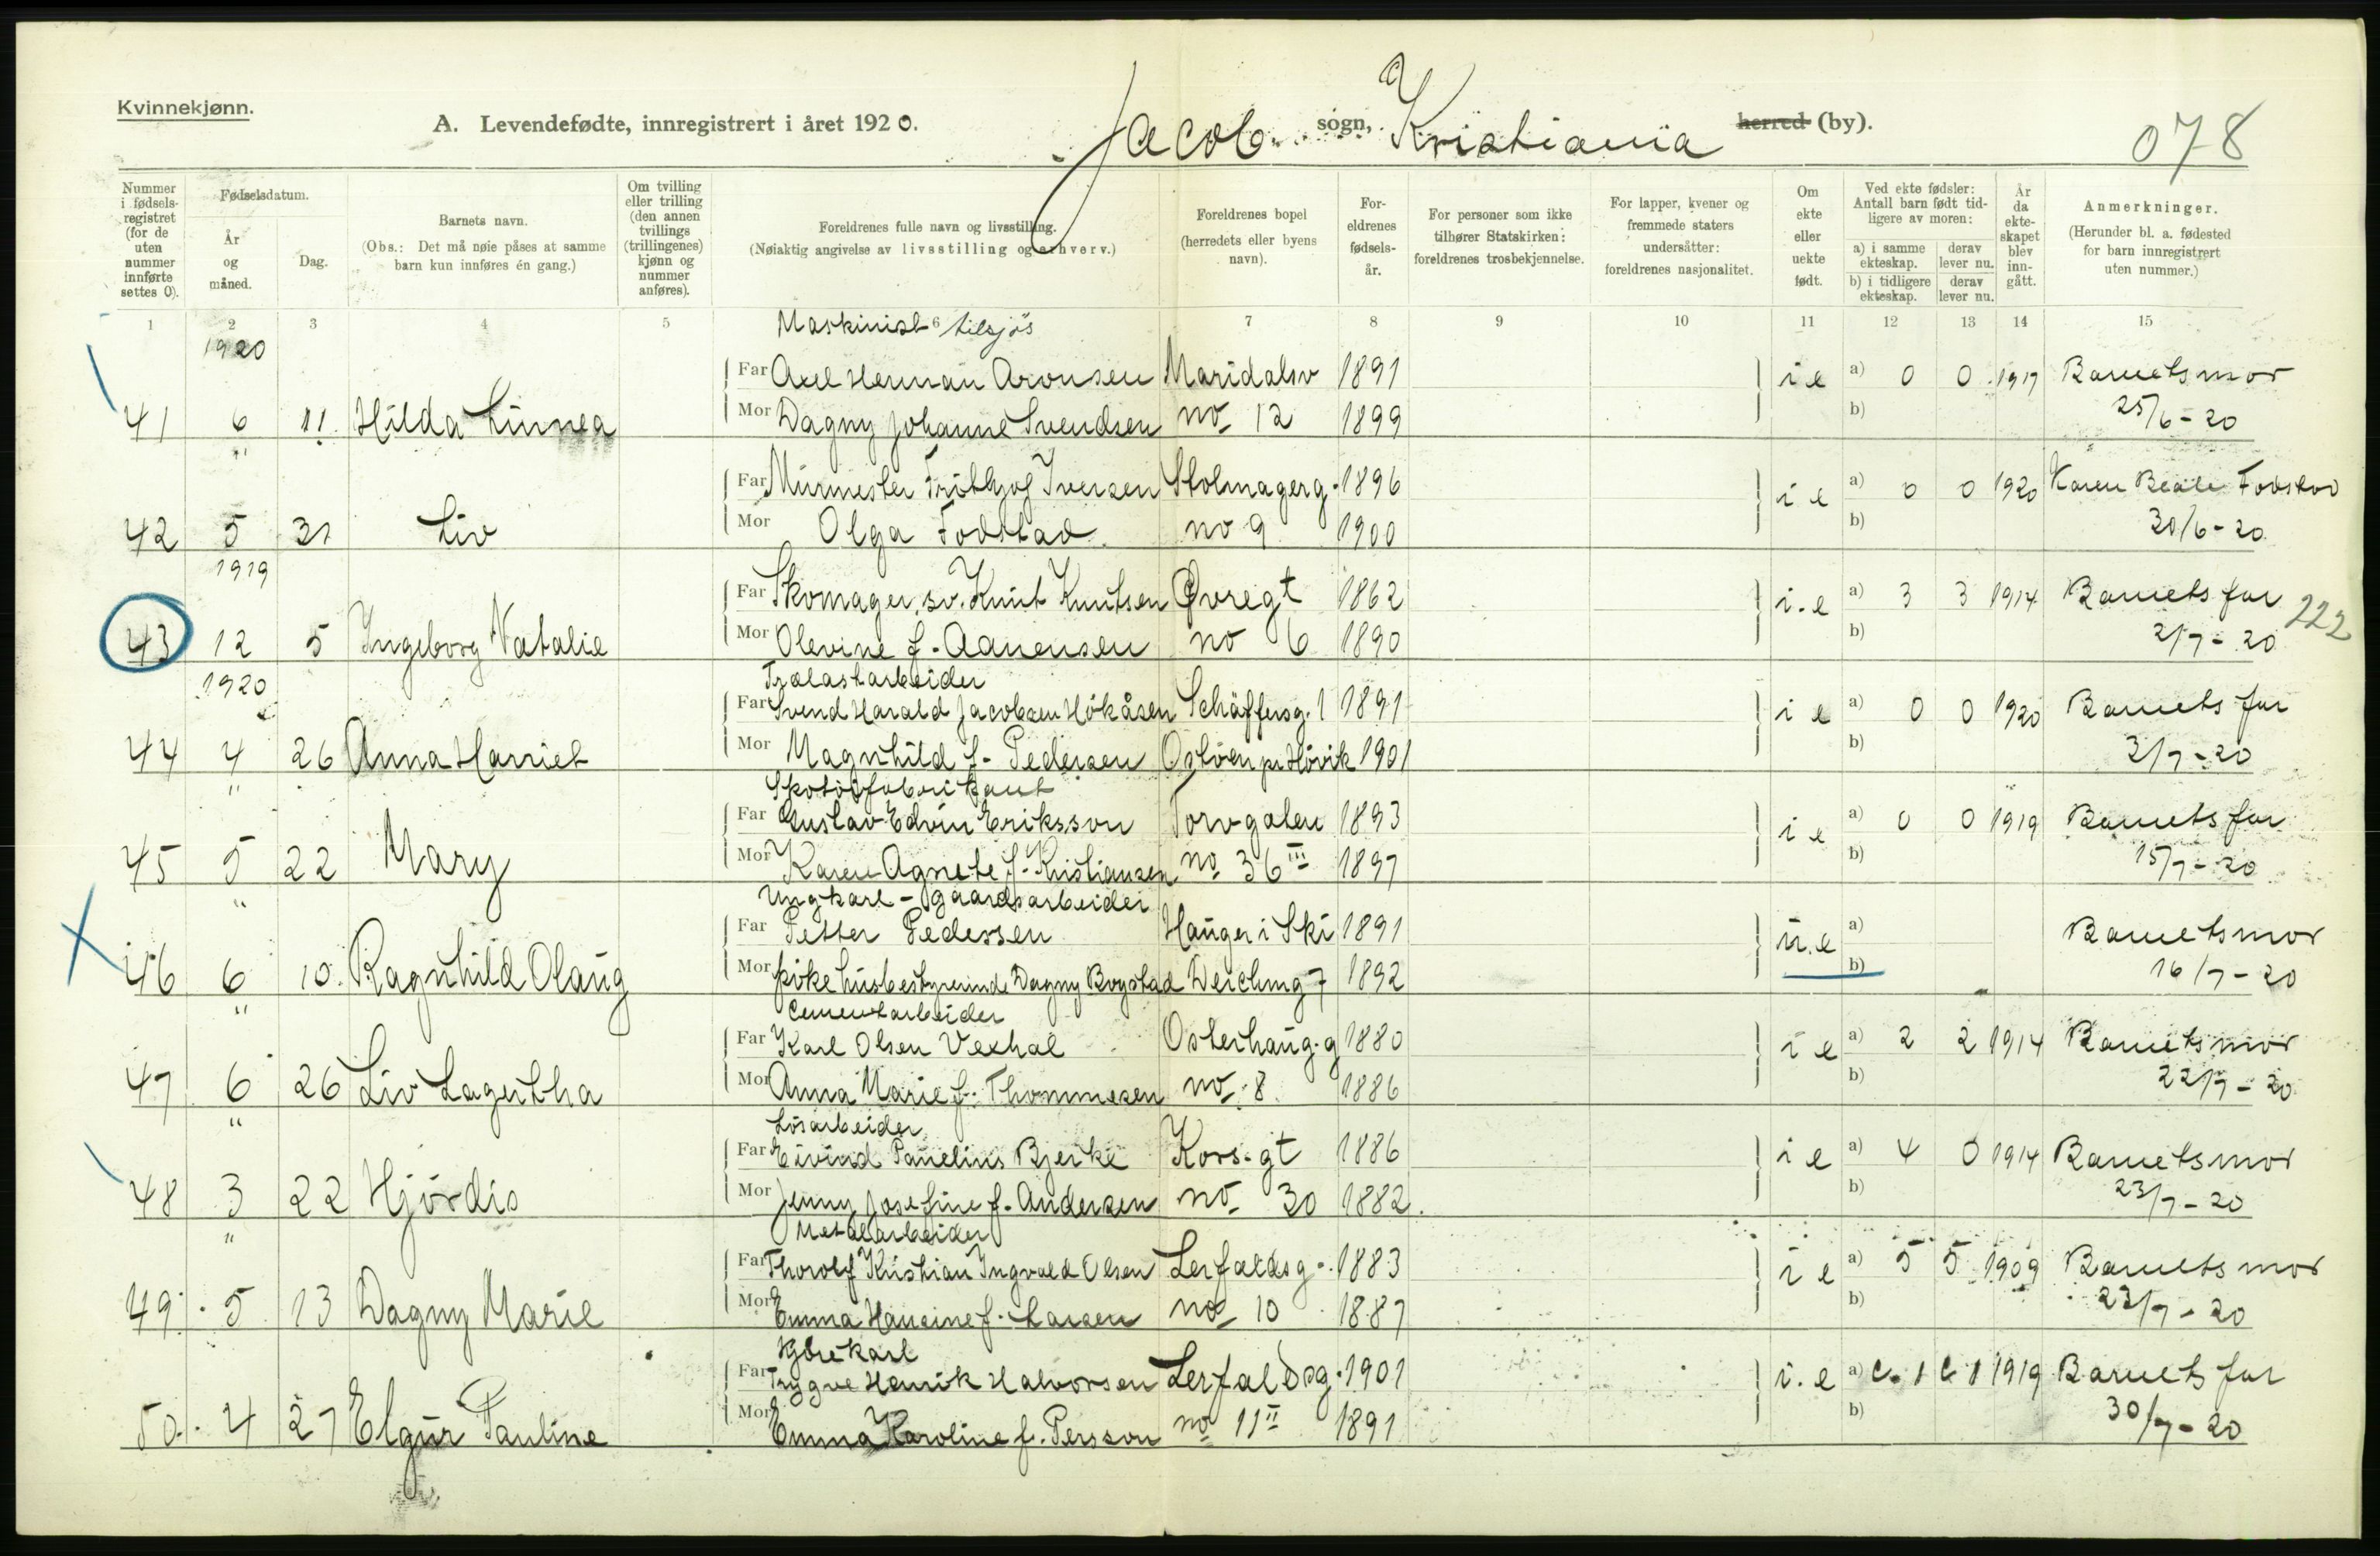 Kvinnekjønn.
A. Levendefødte, innregistrert i året 1920.
Jacob sogn, Kristiania herred (by).
078
Nummer i fødselsregistret (for de uten nummer innførte settes 0).
Fødselsdatum.
År og måned.
Dag.
Barnets navn.
(Obs.: Det må nøie påses at samme barn kun innføres én gang.)
Om tvilling eller trilling (den annen tvillings (trillingenes) kjønn og nummer anføres).
Foreldrenes fulle navn og livsstilling.
(Nøiaktig angivelse av livsstilling og erhverv.)
Foreldrenes bopel (herredets eller byens navn).
Foreldrenes fødselsår.
For personer som ikke tilhører Statskirken: foreldrenes trosbekjennelse.
For lapper, kvener og fremmede staters undersåtter: foreldrenes nasjonalitet.
Om ekte eller uekte født.
Ved ekte fødsler: Antall barn født tidligere av moren:
a) i samme ekteskap. derav lever nu.
b) i tidligere ekteskap. derav lever nu.
År da ekteskapet blev inngått.
Anmerkninger.
(Herunder bl. a. fødested for barn innregistrert uten nummer.)
1 2 3 4 5 6 7 8 9 10 11 12 13 14 15
1920 Maskinist tilsjøs
Far Axel Herman Aronsen Maridalsv 1891 i e a) 0 0 1917 Barnets mor
41 6 11. Hilda Linnea Mor Dagny Johanne Svendsen no 12 1899 b) 25/6-20
"
Far Murmester Frithjof Iversen Stolmagerg. 1896 i e a) 0 0 1920 Karen Beate Fodstad
42 5 31 Liv Mor Olga Fodstad. no 9 1900 b) 30/6-20
1919
Far Skomager.sv. Knut Knutsen Øvregt 1862 i.e a) 3 3 1914 Barnets far 222
43 12 5 Ingeborg Natalie Mor Olevine f. Aanensen no 6 1890 b) 2/7-20
1920 Trælastarbeider
Far Svend Harald Jacobsen Hökåsen Schäffersg. 1 1891 i e a) 0 0 1920 Barnets far
44 4 26 Anna Harriet Mor Magnhild f. Pedersen Ostöen pr Hövik 1901 b) 3/7-20
" Skotöifabrikant
Far Gustav Edvin Eriksson Torvgaten 1893 i e a) 0 0 1919 Barnets far
45 5 22 Mary Mor Karen Agnete f. Kristiansen no 36 III 1897 b) 15/7-20
" Ungkarl - gaardsarbeider
Far Petter Pedersen Hauger i Ski 1891 u.e a) Barnets mor
46 6 10. Ragnhild Olaug Mor pike husbestyrerinde Dagny Bogstad Deichmg 7 1892 b) 16/7-20
" Cementarbeider
Far Karl Olsen Vexhal Osterhaug.g 1880 i e a) 2 2 1914 Barnets mor
47 6 26 Liv Lagertha Mor Anna Marie f. Thommesen no 8. 1886 b) 22/7-20
" Lösarbeider
Far Eivind Paulinus Bjerke Kors.gt 1886 i e a) 4 0 1914 Barnets mor
48 3 22 Hjördis Mor Jenny Josefine f. Andersen no 30 1882. b) 23/7-20
" Metalarbeider
Far Thorolf Kristian Ingvald Olsen Lerfaldsg. 1883 i e a) 5 5 1909 Barnets mor
49. 5 13 Dagny Marie Mor Emma Hansine f. Larsen no 10 1887 b) 23/7-20
Kjörekarl
Far Trygve Henrik Halvorsen Lerfaldsg. 1901 i.e a) C. 1 C 1 1919 Barnets far
50. 4 27 Elgur Pauline Mor Emma Karoline f. Persson no 11 II 1891 b) 30/7-20